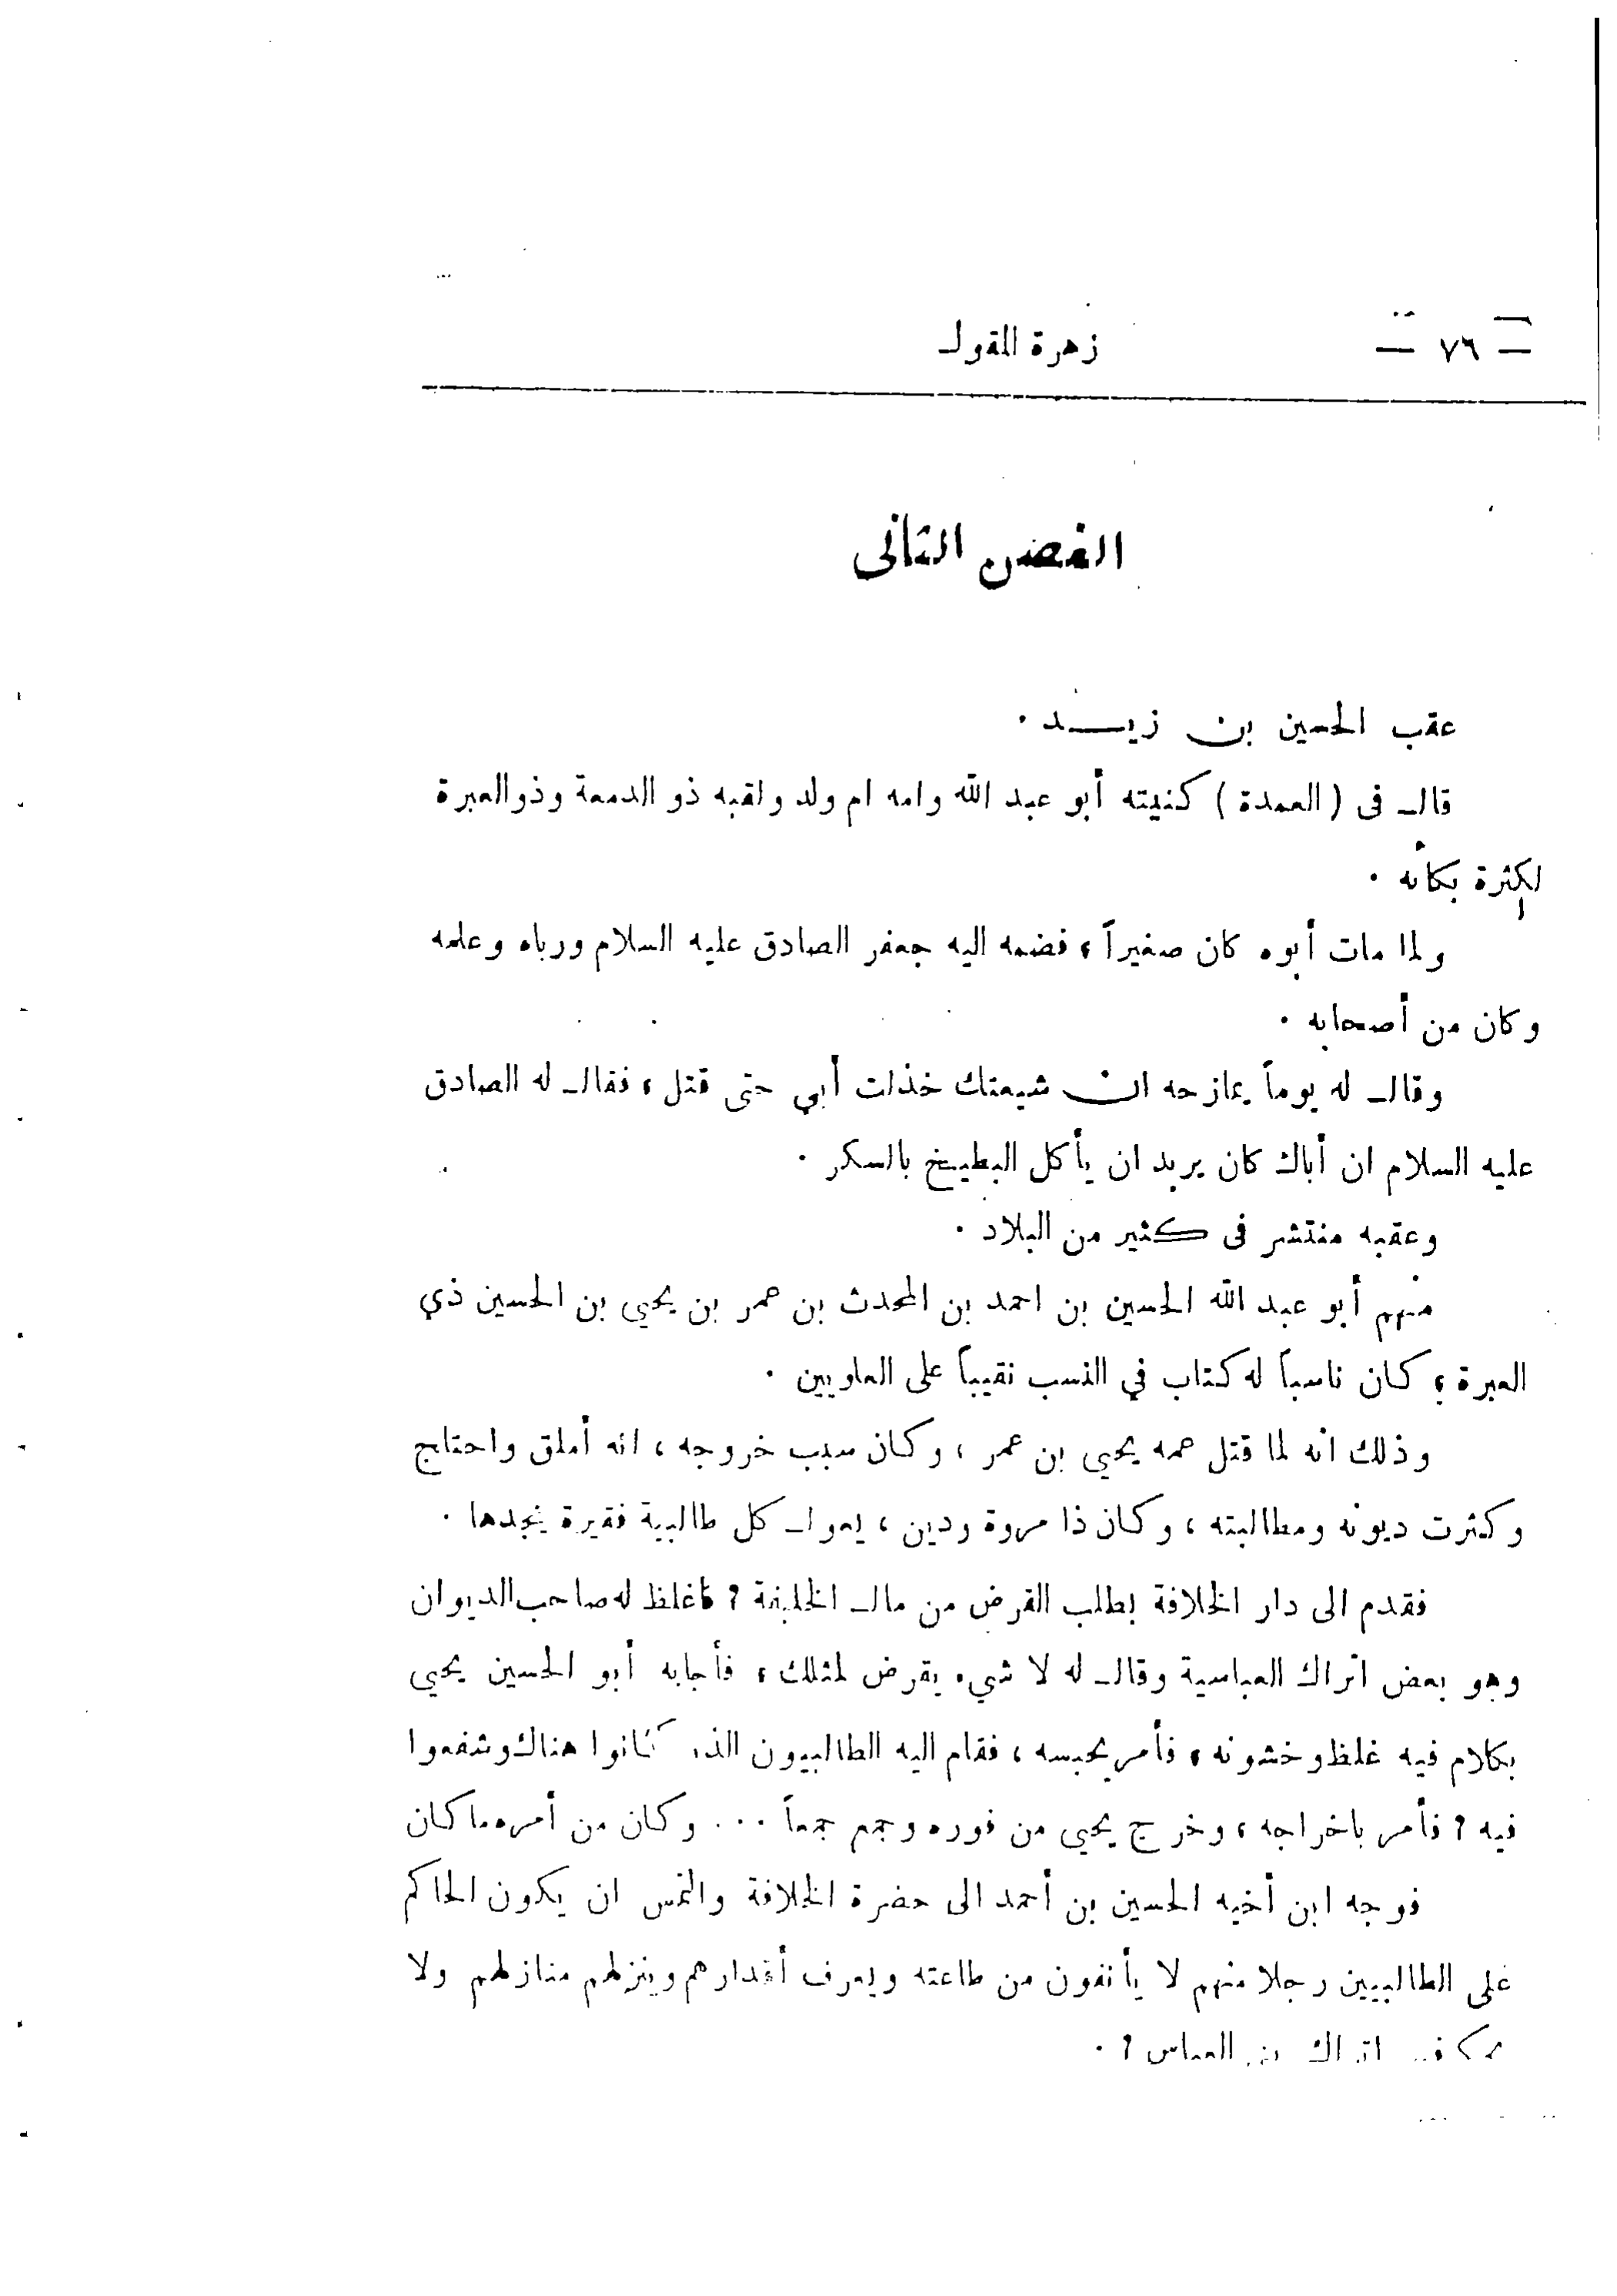 — ٧٦ —
زهرة المقول
الغصن الثانى
عقب الحسين بن زيد .
قال فى ( العمدة ) كنيته أبو عبد الله وامه ام ولد ولقبه ذو الدمعة وذوالعبرة
لكثرة بكائه .
ولما مات أبوه كان صغيراً ، فضمه اليه جعفر الصادق عليه السلام ورباه وعلمه
وكان من أصحابه .
وقال له يوماً يمازحه ان شيعتك خذلت أبي حتى قتل ، فقال له الصادق
عليه السلام ان أباك كان يريد ان يأكل البطيخ بالسكر .
وعقبه منتشر فى كثير من البلاد .
منهم أبو عبد الله الحسين بن احمد بن المحدث بن عمر بن يحيى بن الحسين ذي
العبرة ؛ كان ناسباً له كتاب في النسب نقيباً على العلويين .
وذلك انه لما قتل عمه يحيى بن عمر ، وكان سبب خروجه ، انه أملق واحتاج
وكثرت ديونه ومطالبته ، وكان ذا مروة ودين ، يعول كل طالبية فقيرة يجدها .
فقدم الى دار الخلافة يطلب القرض من مال الخليفة ? فاغلظ له صاحب الديوان
وهو بعض اتراك العباسية وقال له لا شيء يقرض لمثلك ، فأجابه أبو الحسين يحيى
بكلام فيه غلظ وخشونه ، فأمر بحبسه ، فقام اليه الطالبيون كانوا هناك وشفعوا
فيه ? فأمر باخراجه ، وخرج يحيى من فوره وجمع جمعاً ... وكان من أمره ما كان
فوجه ابن أخيه الحسين بن أحمد الى حضرة الخلافة والتمس ان يكون الحاكم
على الطالبيين رجلا منهم لا يأنفون من طاعته ويعرف أقدارهم وينزلهم منازلهم ولا
اتراك العباس ? .